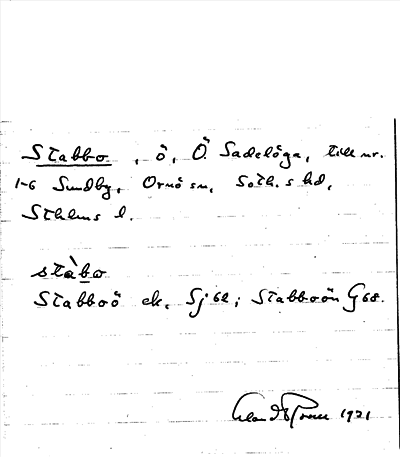 Stabbo, ö, Ö. Sadelöga, till nr.
1-6 Sundby, Ornö sn, Soth.s hd,
Sthlms l.
stàbo
Stabboö ek. Sj 62; Stabboön G 68.
1921